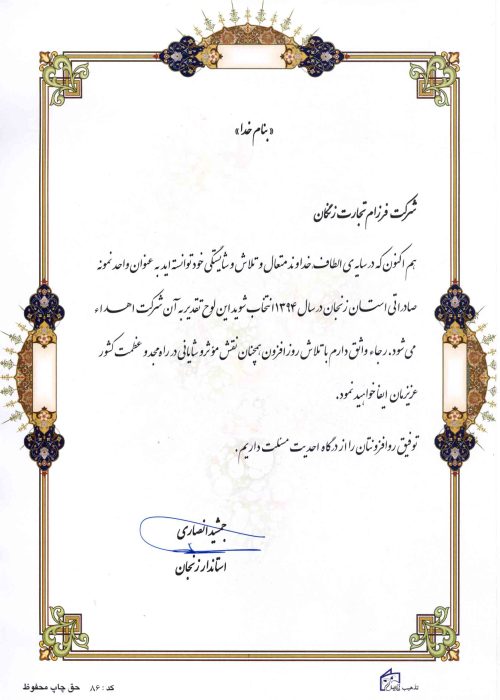 «بنام خدا»
شرکت فرزام تجارت زنگان
هم اکنون که در سایه ی الطاف خداوند متعال و تلاش و شایستگی خود توانسته اید به عنوان واحد نمونه
صادراتی استان زنجان در سال ۱۳۹۴ انتخاب شوید این لوح تقدیر به آن شرکت اهداء
می شود. رجاء واثق دارم با تلاش روز افزون همچنان نقش مؤثر و شایانی در راه مجد و عظمت کشور
عزیزمان ایفا خواهید نمود.
توفیق روز افزونتان را از درگاه احدیت مسئلت داریم.
جمشید انصاری
استاندار زنجان
کد : ۸۶ حق چاپ محفوظ
تذهیب